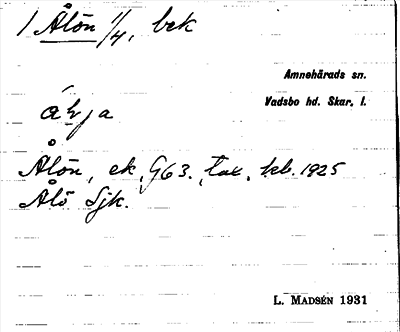 1 Ålön 1/4, bek
Amnehärads sn.
Vadsbo hd. Skar. l.
Ålön, ek, G63. kb. 1925
Ålö Sjk.
L. MADSÉN 1931